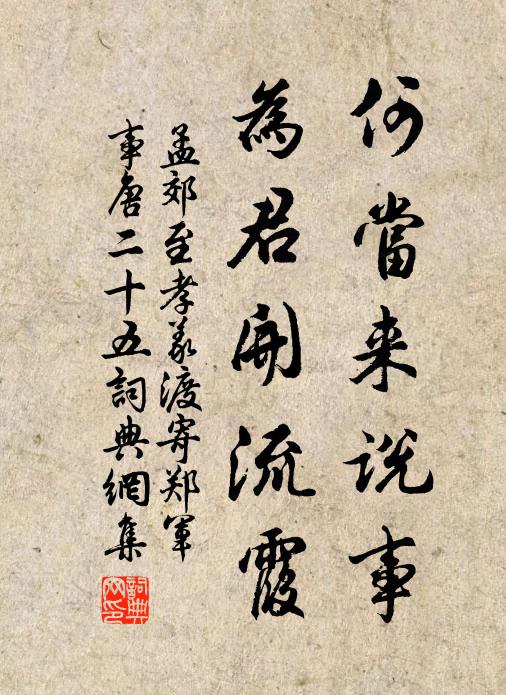 何當来説事
為君開流霞
孟郊至孝義渡寄郑軍
事唐二十五詞典網集
詞典网印